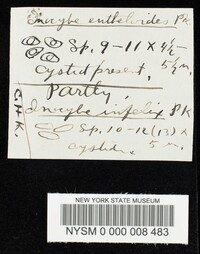 Inocybe entheloides Pk
Sp. 9-11 X 4½-
5½ m.
Cystid present.
Partly,
Inocybe infelix Pk
Sp. 10-12(13) X
5 m.
cystidia
C.H.K.
NEW YORK STATE MUSEUM
NYSM 0 000 008 483